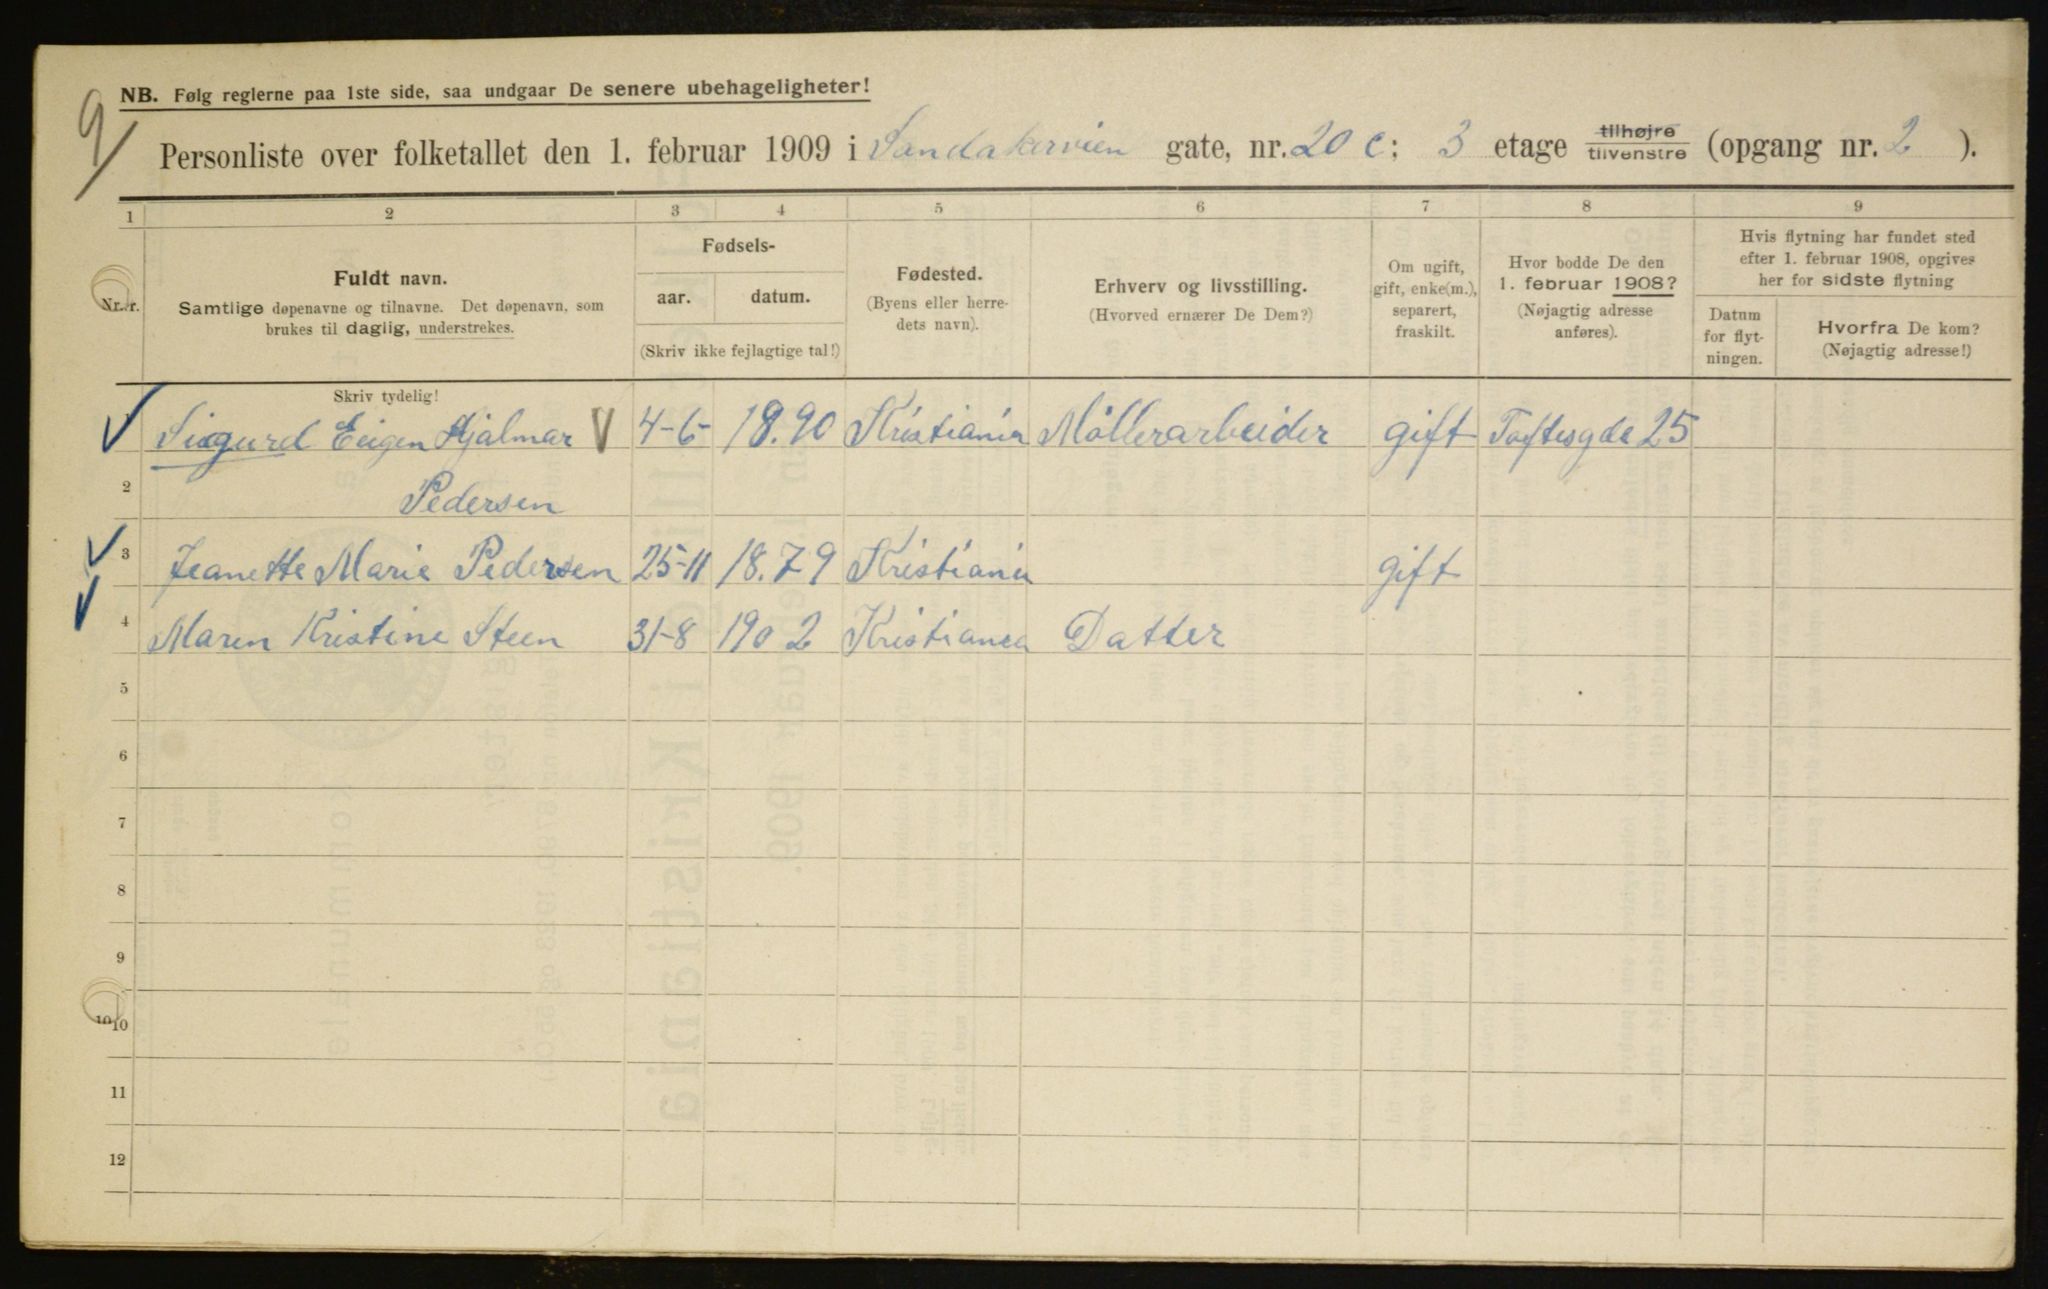 9/
NB. Følg reglerne paa 1ste side, saa undgaar De senere ubehageligheter!
Personliste over folketallet den 1. februar 1909 i Sandakerveien gate, nr. 20 c; 3 etage tilhøjre tilvenstre (opgang nr. 2 ).
1 2 3 4 5 6 7 8 9
Nr.
Fuldt navn.
Samtlige døpenavne og tilnavne. Det døpenavn, som
brukes til daglig, understrekes.
Fødsels-
aar. datum.
(Skriv ikke fejlagtige tal!)
Fødested.
(Byens eller herre-
dets navn).
Erhverv og livsstilling.
(Hvorved ernærer De Dem?)
Om ugift,
gift, enke(m.),
separert,
fraskilt.
Hvor bodde De den
1. februar 1908?
(Nøjagtig adresse
anføres).
Hvis flytning har fundet sted
efter 1. februar 1908, opgives
her for sidste flytning
Datum
for flyt-
ningen.
Hvorfra De kom?
(Nøjagtig adresse!)
Skriv tydelig!
Sigurd Eigen Hjalmar 4-6- 18.90 Kristiania Möllerarbeider gift Toftesgde 25
2 Pedersen
3 Jeanette Marie Pedersen 25-11 18.79 Kristiania gift
4 Maren Kristine Steen 31-8 1902 Kristiania Datter
5
6
7
8
9
10
11
12